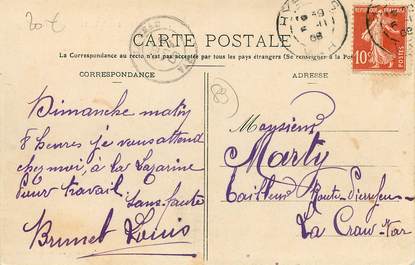 20€
CARTE POSTALE
La Correspondance au recto n'est pas acceptée par tous les pays étrangers (Se renseigner à la Po
CORRESPONDANCE
ADRESSE
10c
POSTES
83
Dimanche matin
8 heures je vous attend
chez moi, à la Lazarine
pour travail
Sans faute
Brunet Louis
Monsieur
Marty
tailleur Route
La Crau Var